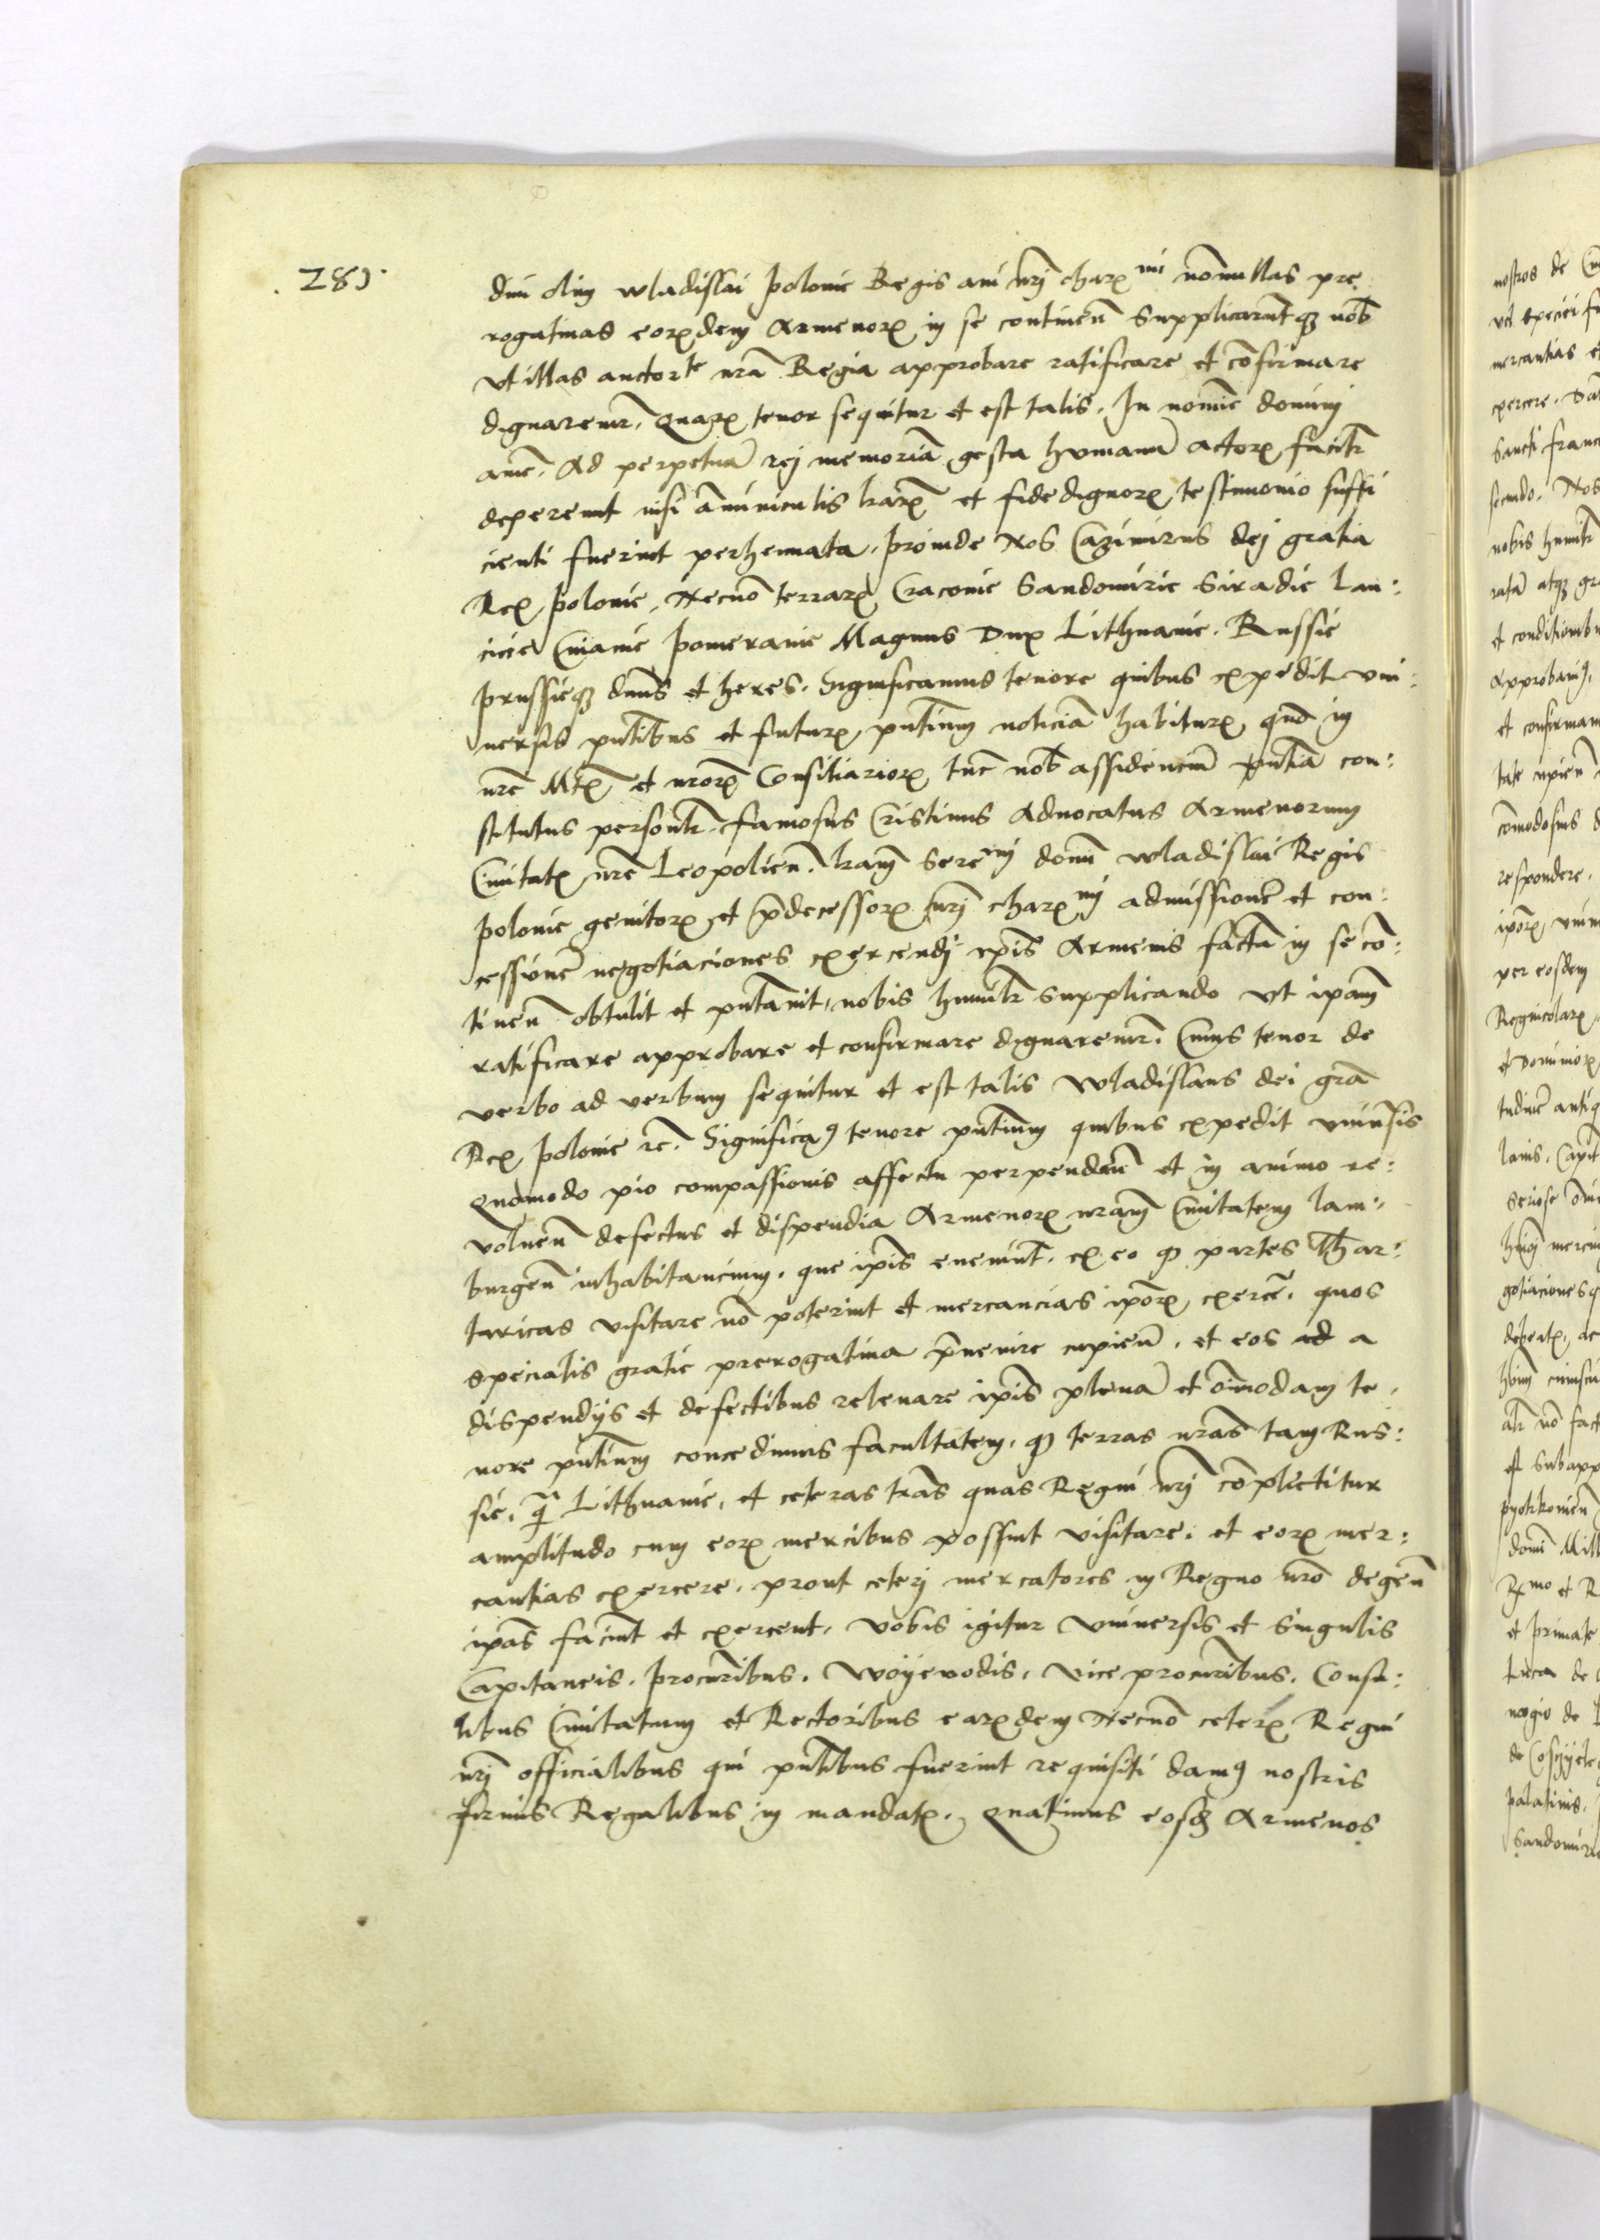 281.
dni olim wladislai polonie Regis aui nrj charꝫ mi nonnullas pre
rogatiuas eorꝫdem Armenorꝫ in se continen̄ Supplicaruntqꝫ nob̄
vt illas auctorte nrā Regia approbare ratificare et cōfirmare
dignaremr̄. quarꝫ tenor sequitur et est talis. In nomīe domini
amē. Ad perpetuā rej memoriā gesta humanā actorꝫ facilr̄
depereunt nisi ammīniculis lr̄arꝫ et fidedignorꝫ testimonio suffi
cienti fuerint perhennata. proinde Nos Cazimirus dej gratia
Rex polonie. Necnō terrarꝫ Cracouie Sandomirie Siradie lan:
cicie Cuiauie pomeranie Magnus Dux Lithuanie. Russie
prussieqꝫ dn̄us et heres. Significamus tenore quibus expedit vni:
uersis pn̄tibus et futurꝫ, pn̄tium noticiā habiturꝫ quō in
nrē Mtꝫ et nrorꝫ Consiliariorꝫ tūc nob̄ assidenciū pn̄tia con:
stitutus personlr̄. famosus Cristinus Aduocatus Armenorum
Ciuitatꝫ nrē Leopolien̄. lr̄am Sereni domi wladislai Regis
polonie genitorꝫ et p̄decessorꝫ nrj charꝫ mi admissionē et con:
cessionē negotiaciones exercendj ip̄is Armenis factā in se cō:
tinen̄ obtulit et pn̄tauit. nobis humilr̄ supplicando vt ip̄am
ratificare approbare et confirmare dignaremr̄. Cuius tenor de
verbo ad verbum sequitur et est talis wladislaus dei grā
Rex polonie rc̄. Significaꝰ tenore pn̄tium quibus expedit vniuersis
quomodo pio compassionis affectu perpenden̄ et in animo re:
voluen̄ defectus et dispendia Armenorꝫ nram Ciuitatem lam:
burgen̄ inhabitancium. que ip̄is eueniunt. ex eo ꝙ partes Thar:
taricas visitare nō poterint et mercancias ip̄orꝫ exercē. quos
specialis gratie prerogatiua p̄uenire cupien̄. et eos ad a
dispendijs et defectibus releuare ip̄is plenā et ōimodam te:
nore pn̄tium concedimus facultatem. ꝙ terras nr̄as tam Rus:
sie. q̄ Lithuanie. et ceteras tr̄as quas Regni nrj cōplectitur
amplitudo cum eorꝫ mercibus possint visitare. et eorꝫ mer:
cantias exercere. prout ceterj mercatores in Regno nrō degen̄
ip̄as faciūt et exercent. vobis igitur vniuersis et singulis
Capitaneis. procur̄ibus. woyeuodis. vice procur̄ibus. Consu:
libus Ciuitatum et Rectoribus earꝫdem Necnō ceterꝫ Regni
nrj officialibus qui pn̄tibus fuerint requisiti damꝰ nostris
firmis Regalibus in mandatꝫ. quatinus eosdꝫ Armenos